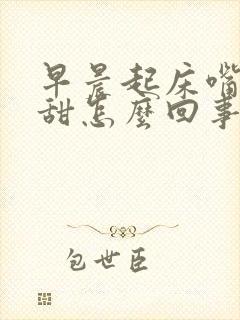 早晨起床嘴
甜怎麽回事
包世臣